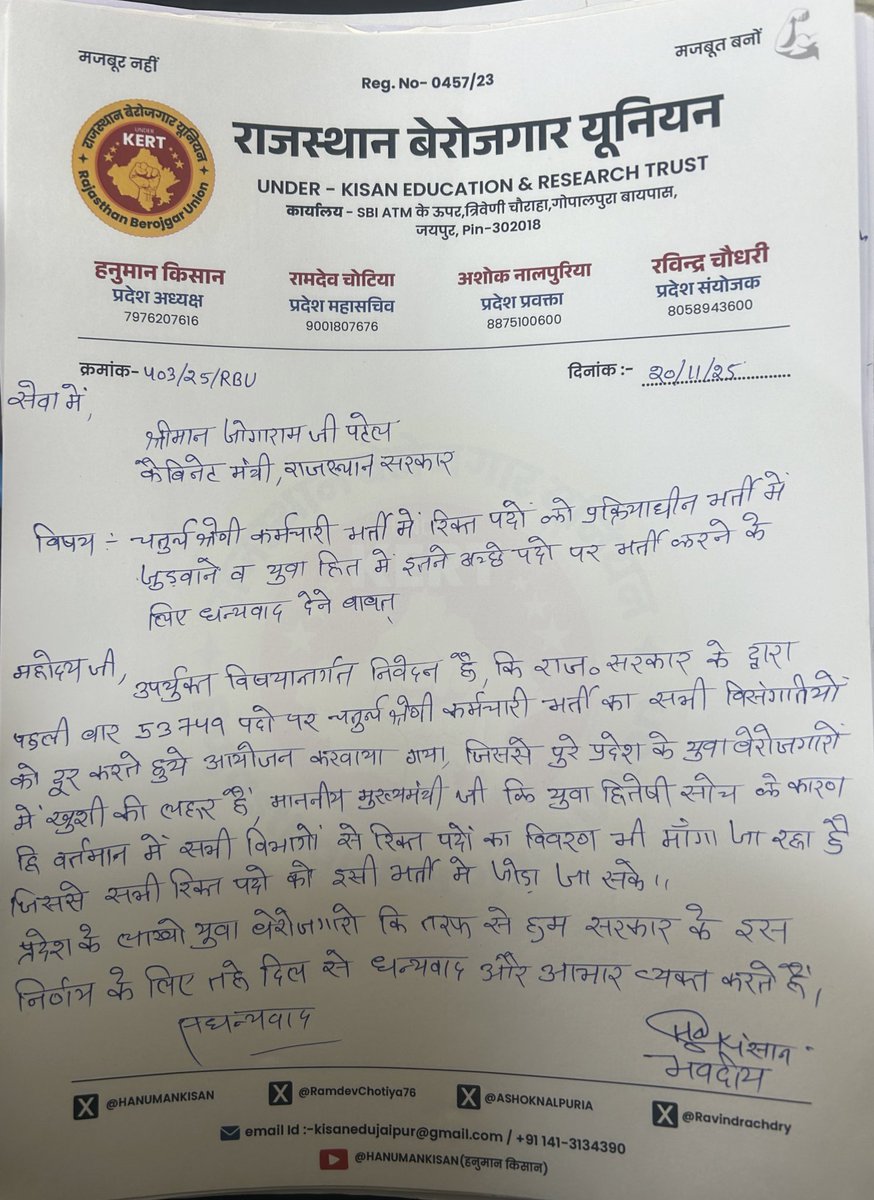 मजबूर नहीं
मजबूत बनों
Reg. No- 0457/23
राजस्थान बेरोजगार यूनियन
UNDER
KERT
Rajasthan Berojgar Union
राजस्थान बेरोजगार यूनियन
UNDER - KISAN EDUCATION & RESEARCH TRUST
कार्यालय - SBI ATM के ऊपर,त्रिवेणी चौराहा,गोपालपुरा बायपास,
जयपुर, Pin-302018
हनुमान किसान
प्रदेश अध्यक्ष
7976207616
रामदेव चोटिया
प्रदेश महासचिव
9001807676
अशोक नालपुरिया
प्रदेश प्रवक्ता
8875100600
रविन्द्र चौधरी
प्रदेश संयोजक
8058943600
क्रमांक- 403/25/RBU
दिनांक :- 20/11/25
सेवा में,
श्रीमान जोगाराम जी पटेल
कैबिनेट मंत्री, राजस्थान सरकार
विषय :- चतुर्थ श्रेणी कर्मचारी भर्ती में रिक्त पदों को प्रक्रियाधीन भर्ती में
जुड़वाने व युवा हित में इतने अच्छे पदो पर भर्ती करने के
लिए धन्यवाद देने बाबत्
महोदय जी,
उपर्युक्त विषयान्तर्गत निवेदन है, कि राज० सरकार के द्वारा
पहली बार 53749 पदो पर चतुर्थ श्रेणी कर्मचारी भर्ती का सभी विसंगतियों
को दूर करते हुये आयोजन करवाया गया, जिससे पुरे प्रदेश के युवा बेरोजगारों
में खुशी की लहर हैं, माननीय मुख्यमंत्री जी कि युवा हितेषी सोच के कारण
हि वर्तमान में सभी विभागों से रिक्त पदों का विवरण भी माँगा जा रहा है
जिससे सभी रिक्त पदो को इसी भर्ती मे जोड़ा जा सके।।
प्रदेश के लाखो युवा बेरोजगारो कि तरफ से हम सरकार के इस
निर्णय के लिए तहे दिल से धन्यवाद और आभार व्यक्त करते हैं।
सधन्यवाद
किसान
भवदीय
@HANUMANKISAN
@RamdevChotiya76
@ASHOKNALPURIA
@Ravindrachdry
email Id :-kisanedujaipur@gmail.com / +91 141-3134390
@HANUMANKISAN(हनुमान किसान)